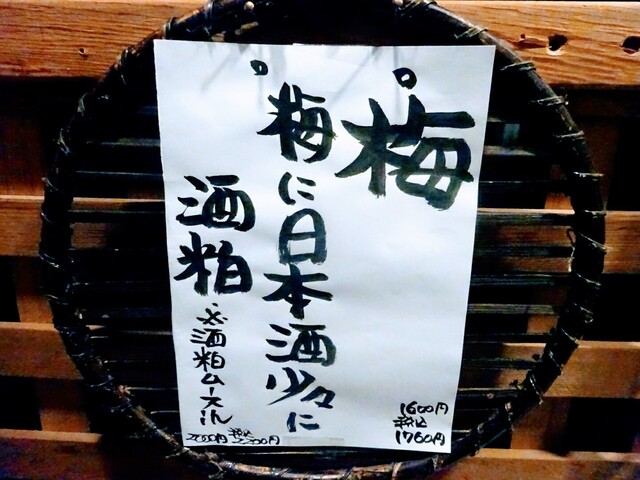 。梅
1600円
税込
1760円
。梅に日本酒少々に
酒粕
※酒粕ムース仆
2000円 税込2200円